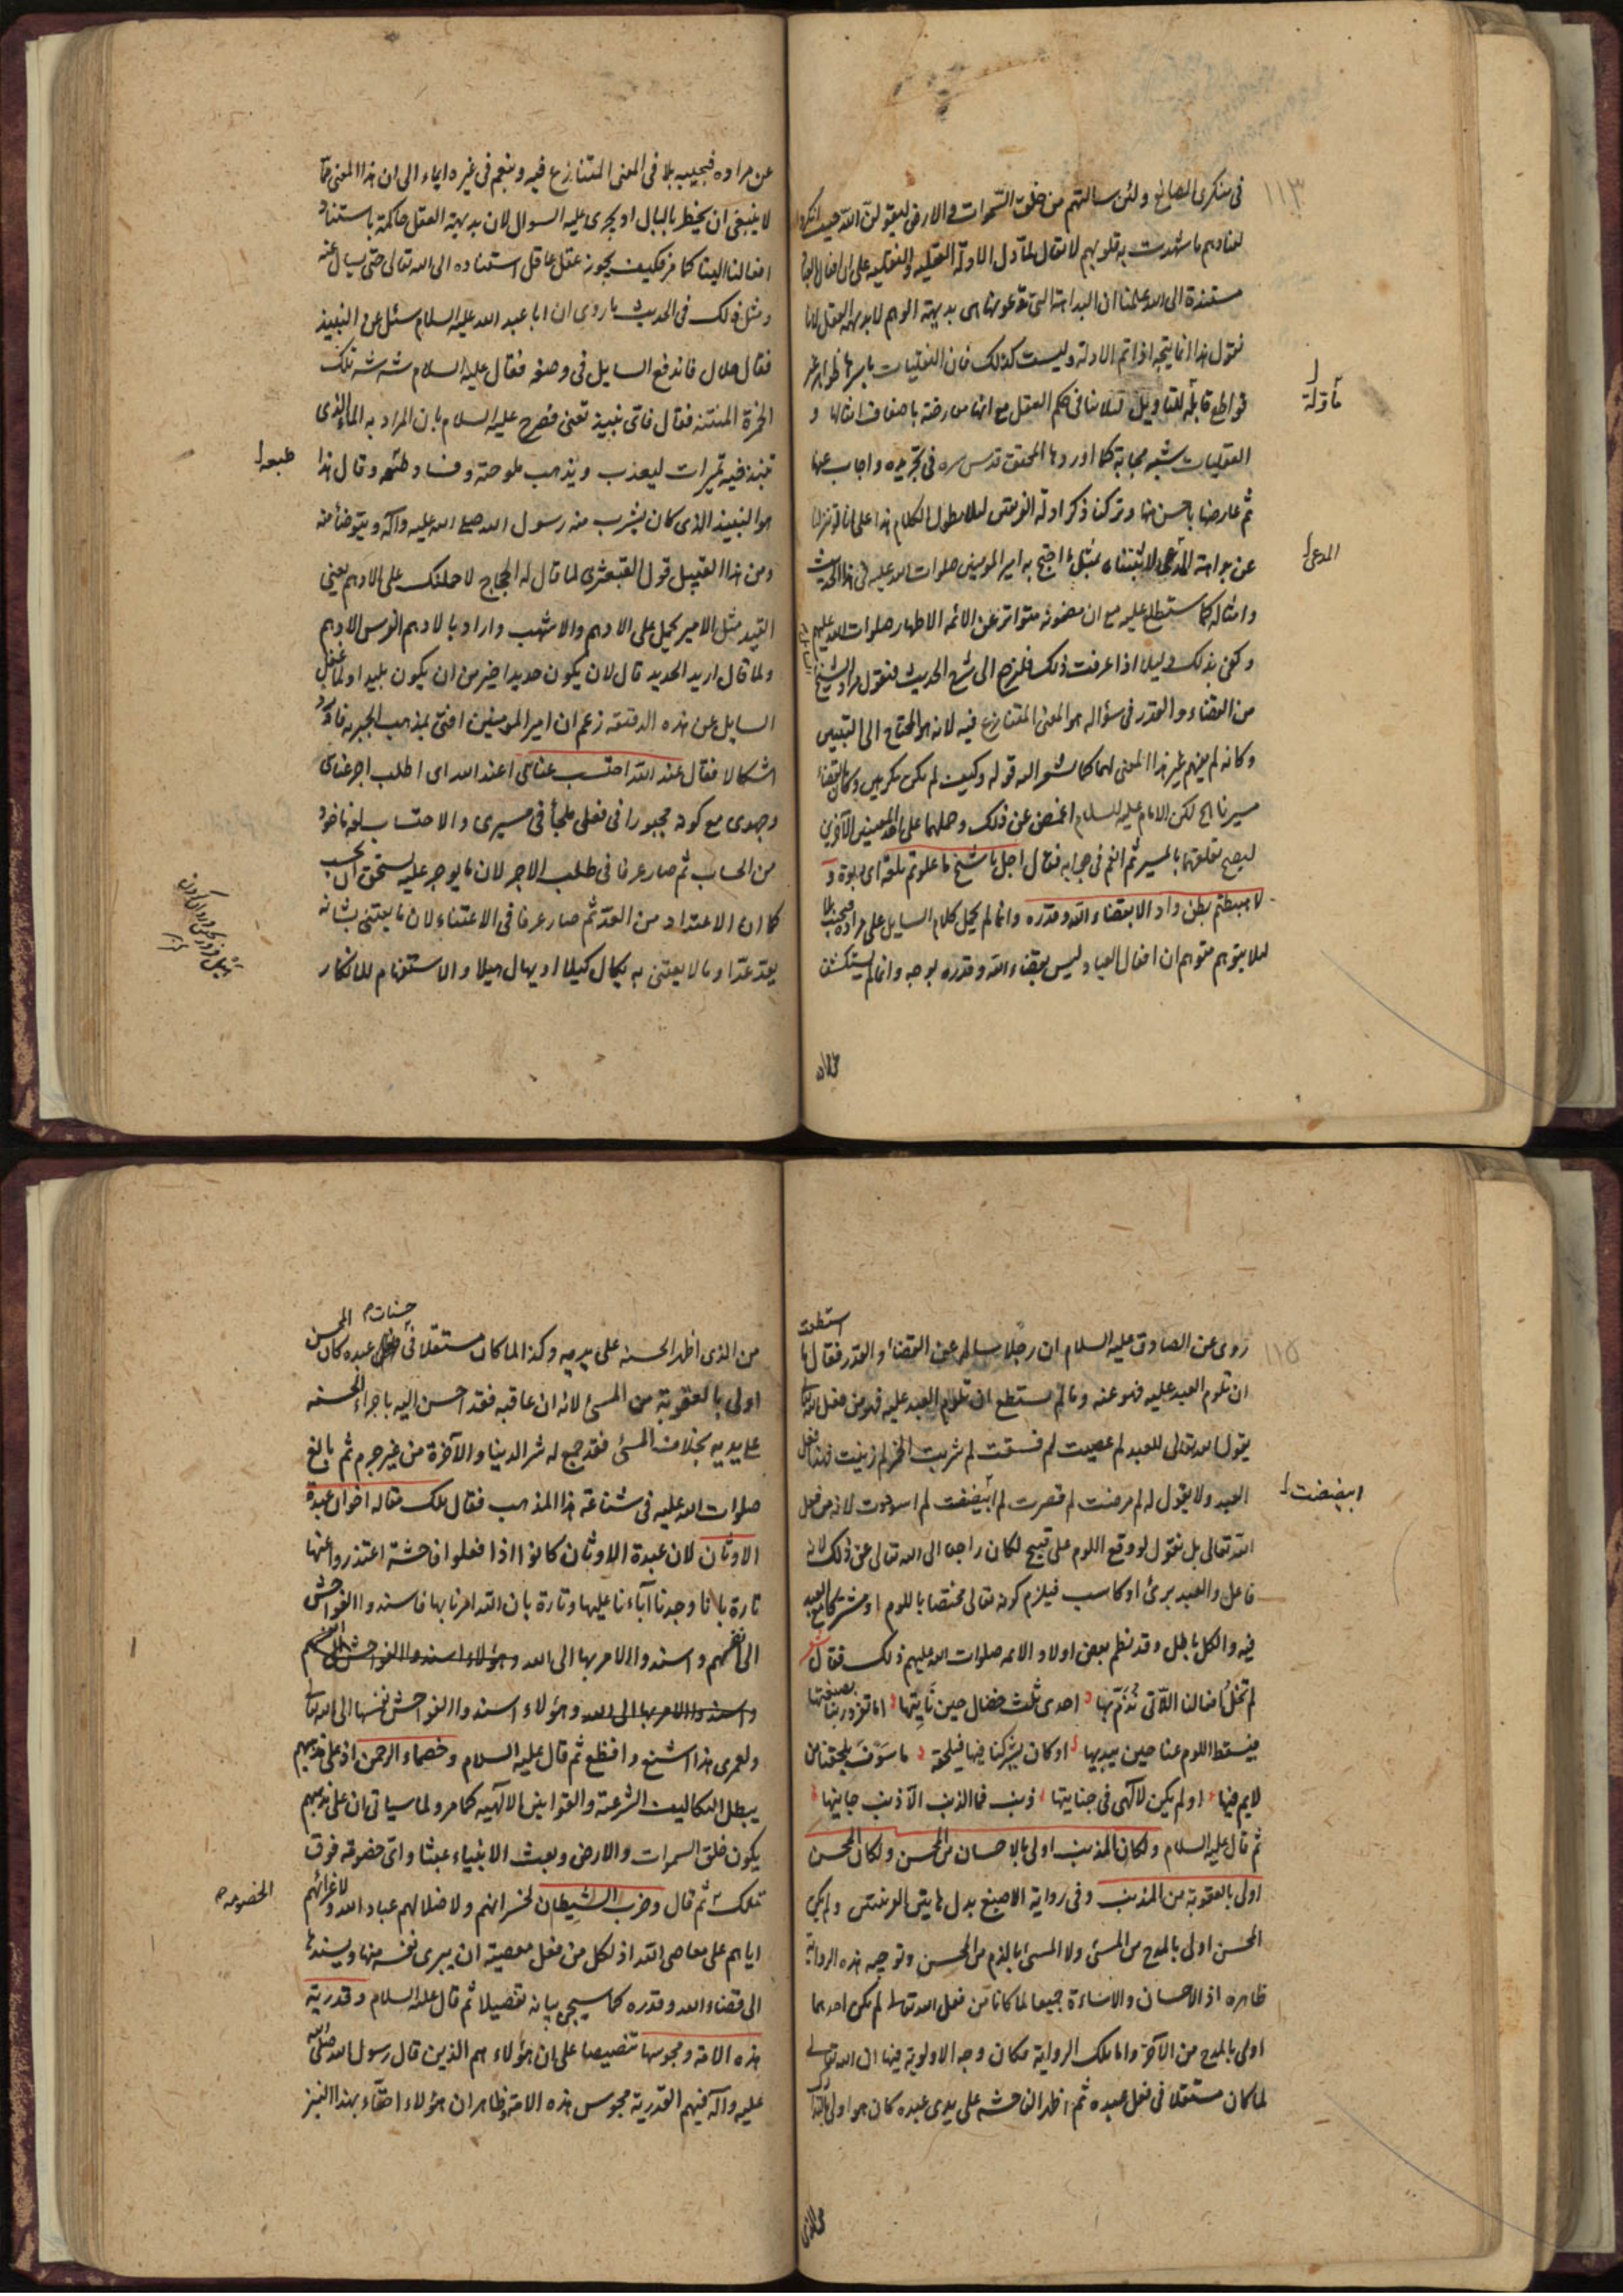 ١١٣
في منكري الصانع ولئن سالتهم من خلق السموات والارض ليقولن الله حيث انكروا
لعنادهم ما شهدت به قلوبهم لا يقال لما دل الادلة العقليه والنقليه على ان افعال العباد
مستندة الى الله علمنا ان البداهة التي تدعونها هي بديهة الوهم لا بديهة العقل لانا
نقول هذا انما يتجه اذا تم الادلة وليست كذلك فان النقليات باسرها ظواهر غير
قواطع قابلة للتاويل لما في حكم العقل مع انها معارضة باضعاف امثالها و
مأولة
العقليات شبه مجابة كما اوردها المحقق قدس سره في تجريده واجاب عنها
ثم عارضها باحسن منها وتركنا ذكر ادلة الفريقين لئلا يطول الكلام هذا على انا لو تنزلنا
عن بداهة المدعى لاثبتناه بمثل ما احتج به امير المومنين صلوات الله عليه في هذا الحديث
المدعى
وامثاله كما ستطلع عليه مع ان مضمونه متواتر عن الائمة الاطهار صلوات الله عليهم
وكفى بذلك دليلا اذا عرفت ذلك فلنرجع الى شرح الحديث فنقول مراد الشيخ
من القضاء والقدر في سؤاله هو المعنى المتنازع فيه لانه هو المحتاج الى التبيين
وكانه لم يفهم غير هذا المعنى لهما كما يشعر اليه قوله وكيف لم نكن مكرهين وكان بالقضاء
مسيرنا الخ لكن الامام عليه السلام اغمض عن ذلك وحملهما على احد المعنيين الآخرين
ليصح تعلقهما بالمسير ثم انعم في جوابه فقال اجل يا شيخ ما علوتم تلعة اى ربوة و
لا هبطتم بطن واد الا بقضاء الله وقدره وانما لم يحمل كلام السايل على مراده فيجيب بلا
لئلا يتوهم متوهم ان افعال العباد ليس بقضاء الله وقدره بوجه وانما لم يستكشف
عن مراده
عن مراده فيجيبه بلا في المعنى المتنازع فيه وبنعم في غيره ايماء الى ان هذا المعنى مما
لا ينبغي ان يخطر بالبال او يجرى عليه السوال لان بديهة العقل حاكمة باستناد
افعالنا الينا كما مر فكيف يجوز عقل عاقل استناده الى الله تعالى حتى يسال عنه
ومثل ذلك في الحديث ما روى ان ابا عبد الله عليه السلام سئل عن النبيذ
فقال حلال فاندفع السايل في وصفه فقال عليه السلام شه شه تلك
الخمرة المنتنة فقال فاى نبيذ تعنى فصرح عليه السلام بان المراد به الماء الذى
تنبذ فيه تميرات ليعذب ويذهب ملوحته وفساد طعمه وقال هذا
طبعه
هو النبيذ الذى كان يشرب منه رسول الله صلى الله عليه وآله ويتوضأ منه
ومن هذا القبيل قول القبعثرى لما قال له الحجاج لاحملنك على الادهم يعنى
القيد مثل الامير يحمل على الادهم والاشهب واراد بالادهم الفرس الادهم
ولما قال اريد الحديد قال لان يكون حديدا خير من ان يكون بليدا ولما غفل
السايل عن هذه الدقيقه زعم ان امير المومنين افتى بمذهب الجبريه فاورد
اشكالا فقال عند الله احتسب عنائي اعند الله اى اطلب اجر عنائى
وجهدى مع كونه مجبورا في فعلى ملجأ في مسيرى والاحتساب لغة ماخوذ
من الحساب ثم صار عرفا في طلب الاجر لان ما يوجر عليه يستحق ان يحسب
كما ان الاعتداد من العد ثم صار عرفا في الاعتناء لان ما يعتنى بشانه
يعد عدا وما لا يعتنى به يكال كيلا او يهال هيلا والاستفهام للانكار
١١٥
روى عن الصادق عليه السلام ان رجلا ساله عن القضاء والقدر فقال ما
استطعت
ان تلوم العبد عليه فهو عنه وما لم يستطع ان تلوم العبد عليه فهو من فعل الله تعالى
يقول الله تعالى للعبد لم عصيت لم فسقت لم شربت الخمر لم زنيت فهذا فعل
العبد ولا يقول له لم مرضت لم قصرت لم ابيضضت لم اسوددت لانه من فعل
ابيضضت
الله تعالى بل نقول لو وقع اللوم على قبيح لكان راجعا الى الله تعالى عن ذلك لانه
فاعل والعبد برئ او كاسب فيلزم كونه تعالى مختصا باللوم او مشتركا مع العبد
فيه والكل باطل وقد نظم بعض اولاد الائمه صلوات الله عليهم ذلك فقال شعر
لم تخل افعالنا اللاتى نُذَمّ بها احدى ثلث خصال حين نأتيها اما تفرد ربنا بصنعتها
فيسقط اللوم عنا حين يبديها او كان يشركنا فيها فيلحقه ما سَوْفَ يلحقنا من
لايم فيها او لم يكن لالهى في جنايتها ذنب فما الذنب الا ذنب جانيها
ثم قال عليه السلام ولكان المذنب اولى بالاحسان من المحسن ولكان المحسن
اولى بالعقوبة من المذنب وفي رواية الاصبغ بدل هاتين القرينتين ولم يكن
المحسن اولى بالمدح من المسئ ولا المسئ بالذم من المحسن وتوجيه هذه الرواية
ظاهره اذ الاحسان والاساءة جميعا لما كانا من فعل الله تعالى لم يكن احدهما
اولى بالمدح من الآخر واما تلك الرواية فكان وجه الاولوية فيها ان الله تعالى
لما كان مستقلا في فعل عبده ثم اظهر الفاحشة على يدى عبده كان هو اولى
من الذى
حسنات
من الذى اظهر الحسنه على يديه وكذا لما كان مستقلا في عبده كان المحسن
اولى بالعقوبة من المسئ لانه ان عاقبه فقد احسن اليه باجراء الحسنه
على يديه بخلاف المسئ فقد جمع له شر الدنيا والآخرة من غير جرم ثم بالغ
صلوات الله عليه في شناعة هذا المذهب فقال تلك مقالة اخوان عبدة
الاوثان لان عبدة الاوثان كانوا اذا فعلوا فاحشة اعتذروا عنها
تارة بانا وجدنا آباءنا عليها وتارة بان الله امرنا بها فاسندوا الفواحش
الى انفسهم واسندوا الامر بها الى الله وهؤلاء اسندوا الفواحش الى انفسهم
واسندوا الامر بها الى الله وهؤلاء اسندوا الفواحش نفسها الى الله تعالى
ولعمرى هذا اشنع وافظع ثم قال عليه السلام وخصماء الرحمن اذ على مذهبهم
يبطل التكاليف الشرعية والقوانين الالهيه كما مر ولما سياتى ان على مذهبهم
يكون خلق السموات والارض وبعث الانبياء عبثا واى خصومة فوق
تلك ثم قال وحزب الشيطان لخسرانهم ولاضلالهم عباد الله ولاغرائهم
الخصومة
اياهم على معاصى الله اذ لكل من فعل معصية ان يبرى نفسه منها ويسندها
الى قضاء الله وقدره كما سيجئ بيانه تفصيلا ثم قال عليه السلام وقدرية
هذه الامة ومجوسها تنصيصا على ان هؤلاء هم الذين قال رسول الله صلى الله
عليه وآله فيهم القدرية مجوس هذه الامة وظاهر ان هؤلاء احقاء بهذا النبز